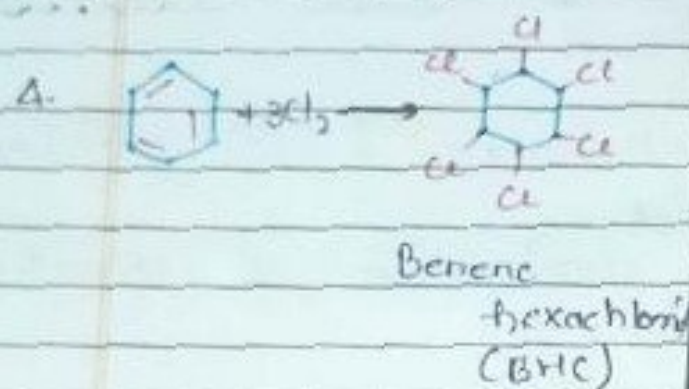 Δ.
+ 3Cl₂ ⟶
Cl
Cl Cl
Cl Cl
Cl
Benene
hexachlori
(BHC)